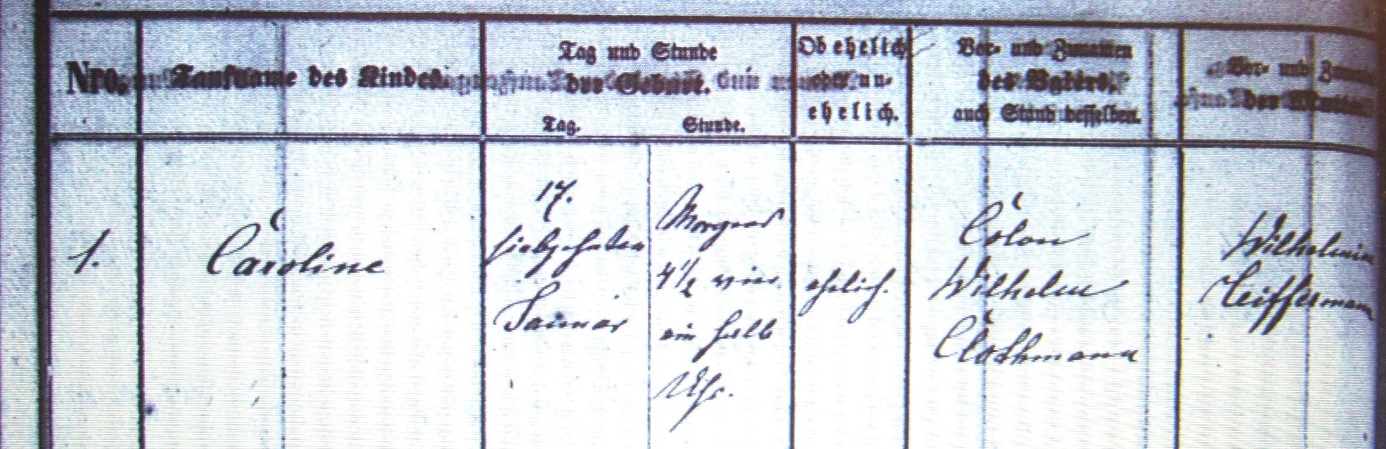 Nro.
Taufname des Kindes.
Tag und Stunde
der Geburt.
Tag.
Stunde.
Ob ehelich
oder un-
ehelich.
Vor- und Zunamen
des Vaters,
auch Stand desselben.
Vor- und
der Mutter.
1.
Caroline
17.
siebzehnten
Januar
Morgens
4 1/2 vier
ein halb
Uhr.
ehelich.
Colon
Wilhelm
Clothmann